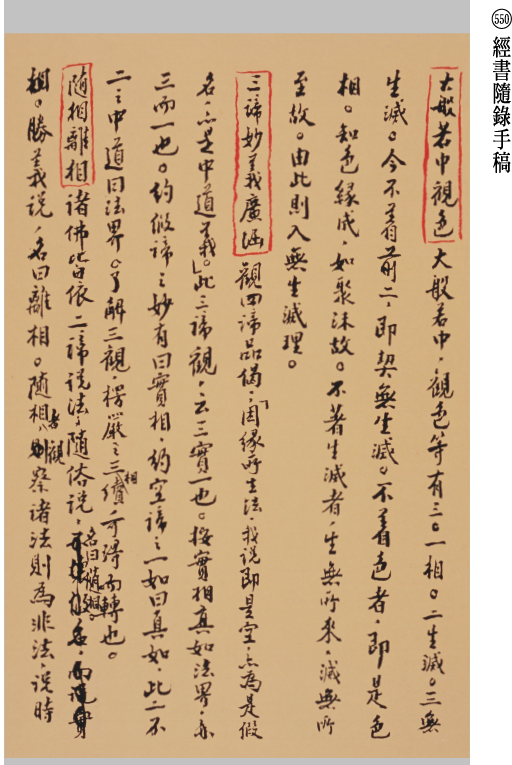 550 經書隨錄手稿
大般若中觀色 大般若中，觀色等有三。一相。二生滅。三無
生滅。今不着前二，即契無生滅。不着色者，即是色
相。知色緣成，如聚沫故。不著生滅者，生無所來，滅無所
至故。由此則入無生滅理。
三諦妙義廣涵 觀四諦品偈，「因緣所生法，我說即是空，亦為是假
名，亦是中道義。」此三諦觀，云三實一也。按實相真如法界，亦
三而一也。約俗諦之妙有曰實相，約空諦之一如曰真如，此二不
二之中道曰法界。了解三觀，楞嚴之三續相，可得而轉也。
隨相離相 諸佛皆依二諦說法，隨俗說，名曰隨相。
相。勝義說，名曰離相。隨相者，則觀察諸法則為非法，說時